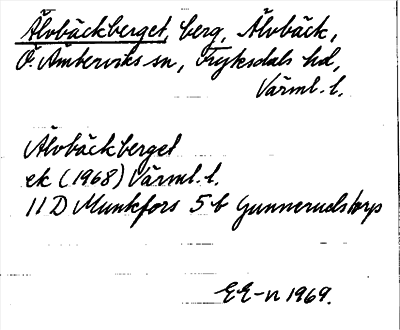 Älvbäckberget, berg, Älvbäck,
Ö. Ämterviks sn, Fryksdals hd,
Värml. l.
Älvbäckberget
ek (1968) Värml. l.
11 D Munkfors 5 b Gunnerudstorp
EE-n 1969.